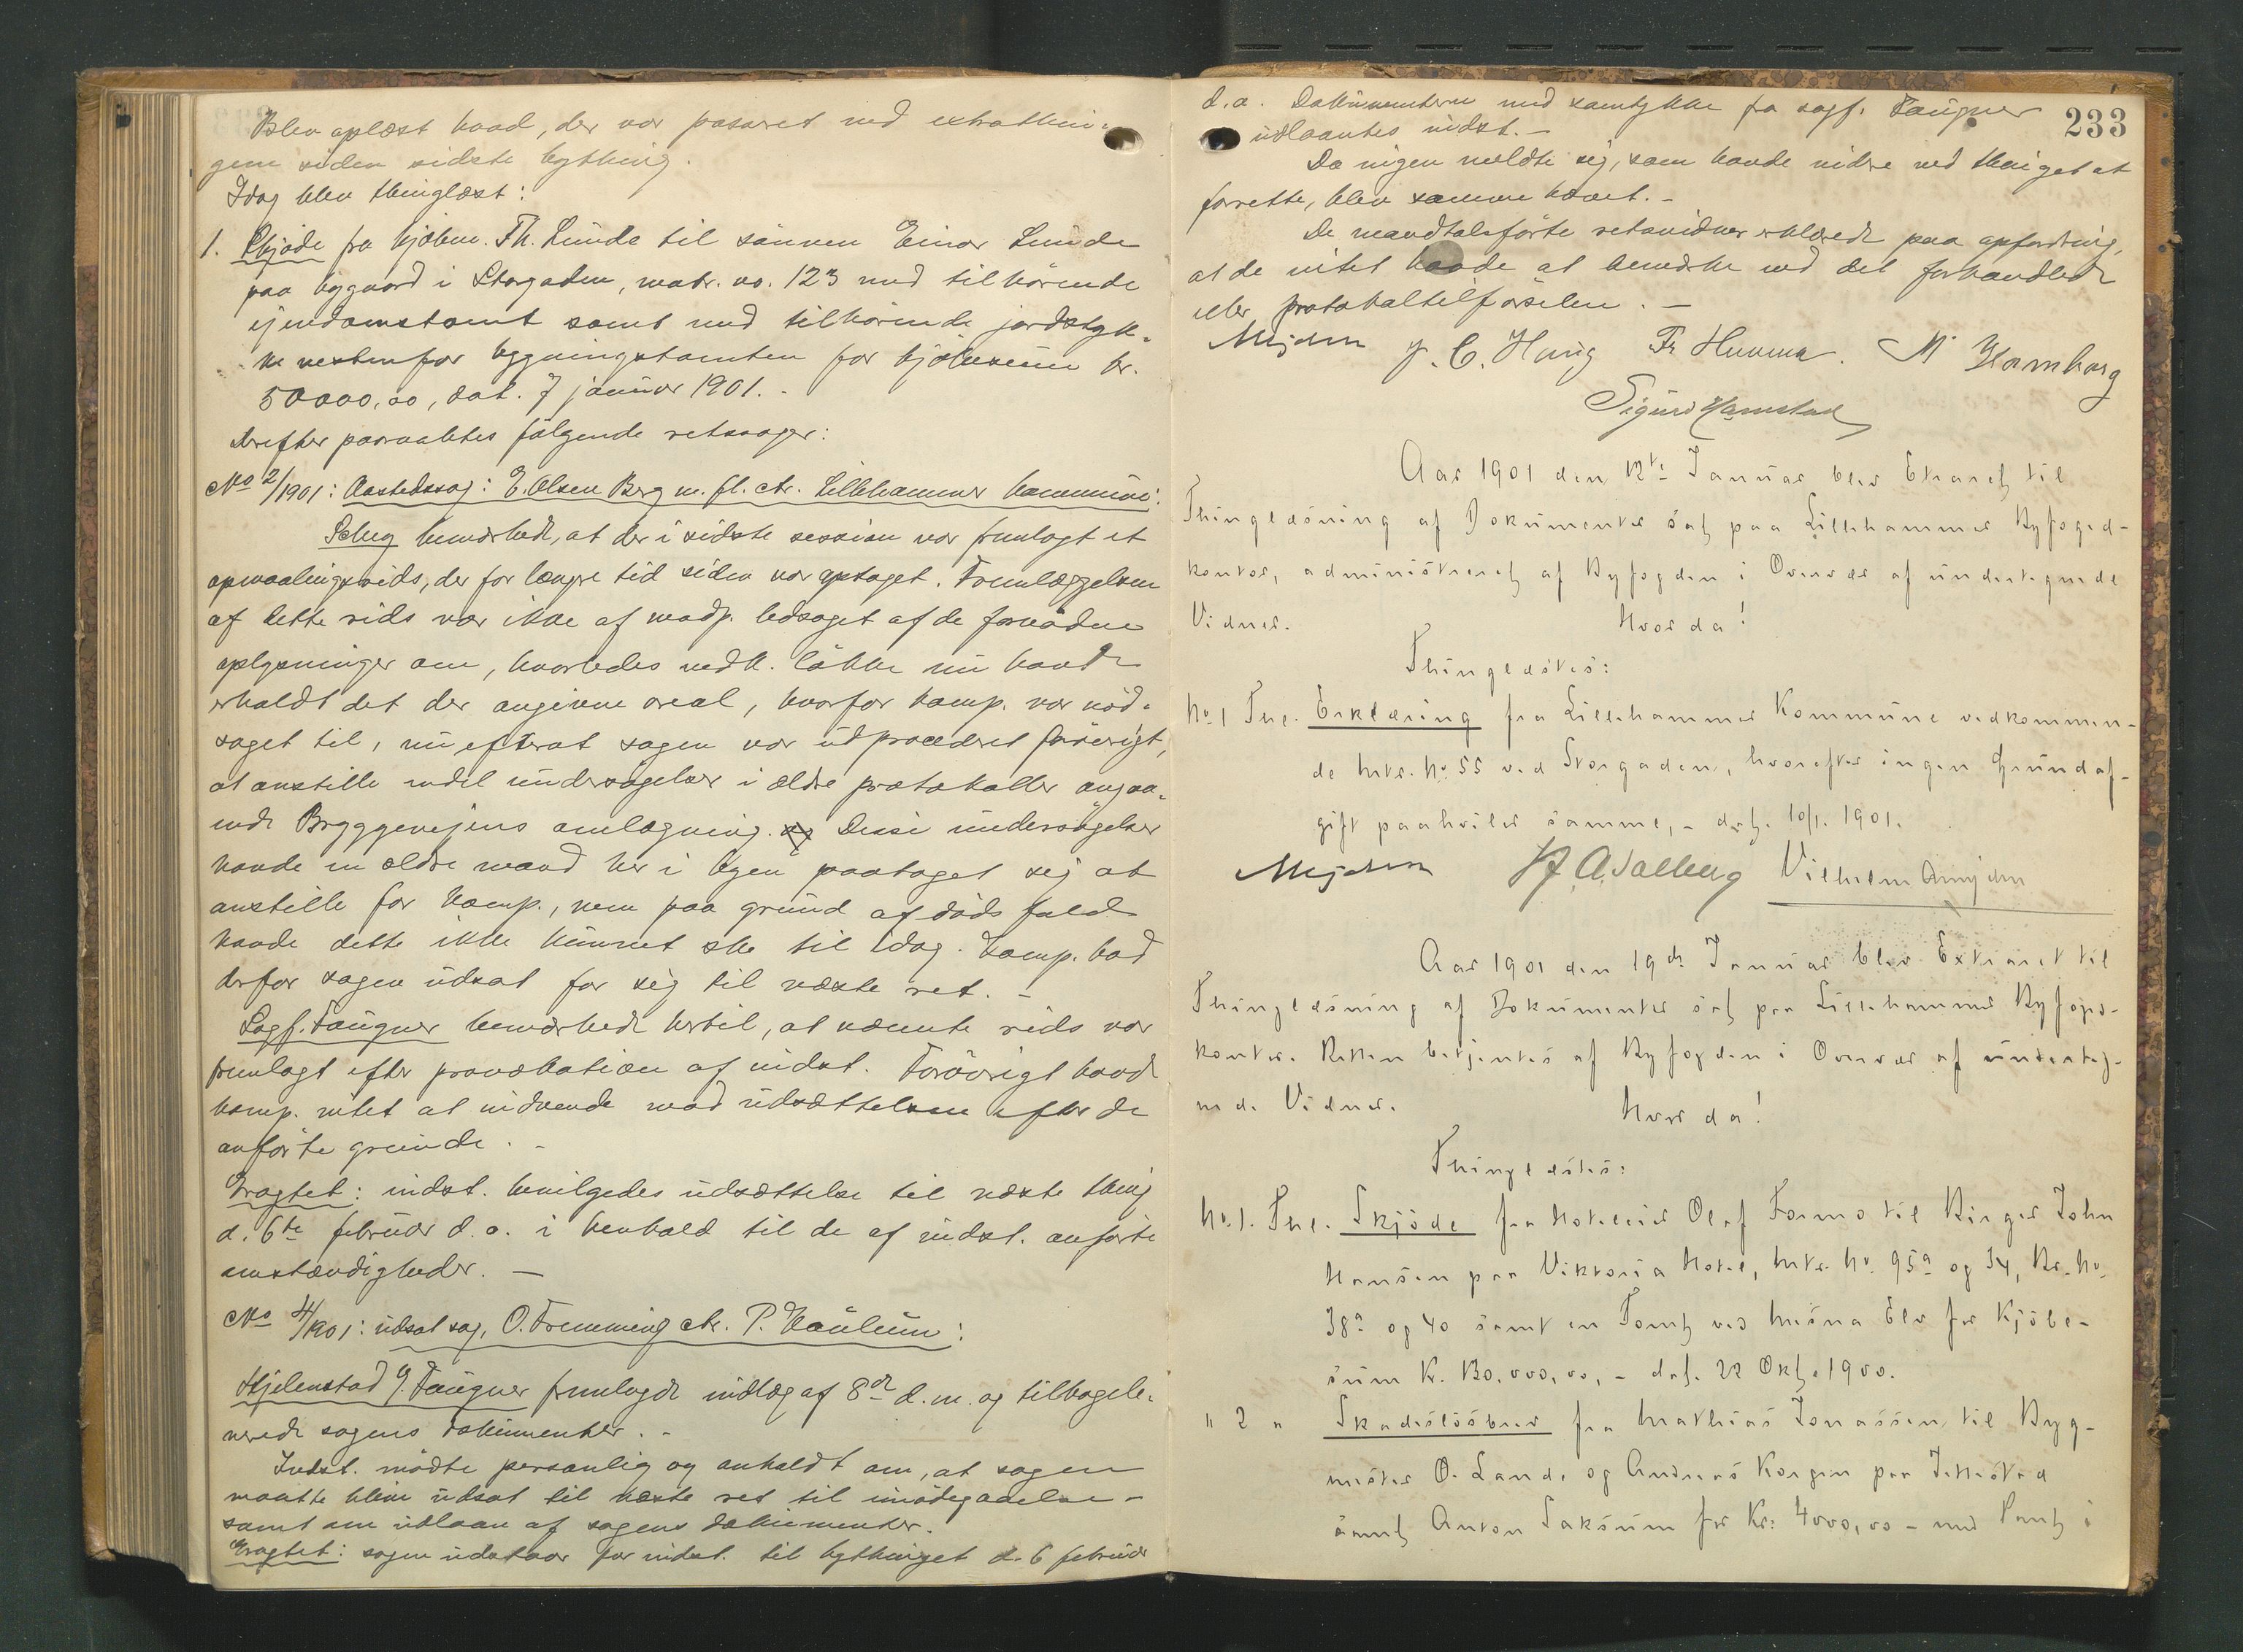 Blev oplæst hvad, der var passeret ved extrathin-
gene siden sidste bything.
Idag blev thinglæst:
1. Skjøde fra kjøbm. Th. Lunde til sønnen Einar Lunde
paa bygaard i Storgaden, matr. no. 123 med tilhørende
ejendomstomt samt med tilhørende jordstyk-
ke vestenfor bygningstomten for kjøbesum kr.
50000,00, dat. 7 januar 1901. -
Derefter paaraabtes følgende retssager:
No 2/1901: Aastedssag: E. Olsen Berg m. fl. ctr. Lillehammer kommune:
bemærkede, at der i sidste session var fremlagt et
opmaalingsrids, der for længre tid siden var optaget. Fremlæggelsen
af dette rids var ikke af modp. ledsaget af de fornødne
oplysninger om, hvorledes vedk. løkke nu havde
erholdt det der angivne areal, hvorfor komp. var nød-
saget til, nu efterat sagen var udprocederet forøvrigt,
at anstille endel undersøgelser i ældre protokoller angaa-
ende Bryggevejens omlægning. Disse undersøgelser
havde en ældre mand her i byen paataget sig at
anstille for komp., men paa grund af dødsfald
havde dette ikke kunnet ske til idag. Komp. bad
derfor sagen udsat for sig til næste ret. -
Sagf. Faugner bemærkede hertil, at nævnte rids var
fremlagt efter provokation af indst. Forøvrigt havde
komp. intet at indvende mod udsættelsen efter de
anførte grunde. -
Eragtet: indst. bevilgedes udsættelse til næste thing
d. 6te februar d. a. i henhold til de af indst. anførte
omstændigheder. -
No 4/1901: udsat sag, O. Fremming ctr. P. Haulum:
Hjelmstad f. Faugner fremlagde indlæg af 8de d. m. og tilbagele-
verede sagens dokumenter. -
Indst. mødte personlig og anholdt om, at sagen
maatte blive udsat til næste ret til imødegaaelse -
samt om udlaan af sagens dokumenter.
Eragtet: sagen udstaar for indst. til bythinget d. 6 februar
233
d. a. Dokumenterne med samtykke fra sagf. Faugner
udlaantes indst. -
Da ingen meldte sig, som havde videre ved thinget at
forrette, blev samme hævet. -
De mandtalsførte retsvidner erklærede paa opfordring,
at de intet havde at bemærke ved det forhandlede
eller protokoltilførselen. -
Mejdell J. C. Haug Fr. M. Hamborg
Sigurd Hamstad
Aar 1901 den 12te Januar blev Extraret til
Thinglæsning af Dokumenter sat paa Lillehammer Byfoged-
kontor, administreret af Byfogden i Overvær af undertegnede
Vidner. Hvor da!
Thinglæstes:
No 1 Tnl. Erklæring fra Lillehammer Kommune vedkommen-
de Mtr. No 55 ved Storgaden, hvorefter ingen Grundaf-
gift paahviler samme, - dat. 10/1. 1901.
Mejdell A. Salberg Vilhelm
Aar 1901 den 19de Januar blev Extraret til
Thinglæsning af Dokumenter sat paa Lillehammer Byfogd-
kontor. Retten betjentes af Byfogden i Overvær af underteg-
nede Vidner. Hvor da!
Thinglæstes:
No 1. Tnl. Skjøde fra Hoteleier Olaf Formo til Birger John
Hansen paa Viktoria Hotel, Mtr. No 95a og 34, Br. No
38a og 40 samt en Tomt ved Mesna Elv for Kjøbe-
sum Kr. 130,000,00, - dat. 22 Okt. 1900.
" 2 " Skadesløsbrev fra Mathias Jonassen til Byg-
mester O. Lande og Andreas Korgen paa Jettestad
samt Anton Saksum for Kr. 4000,00 - med Pant i